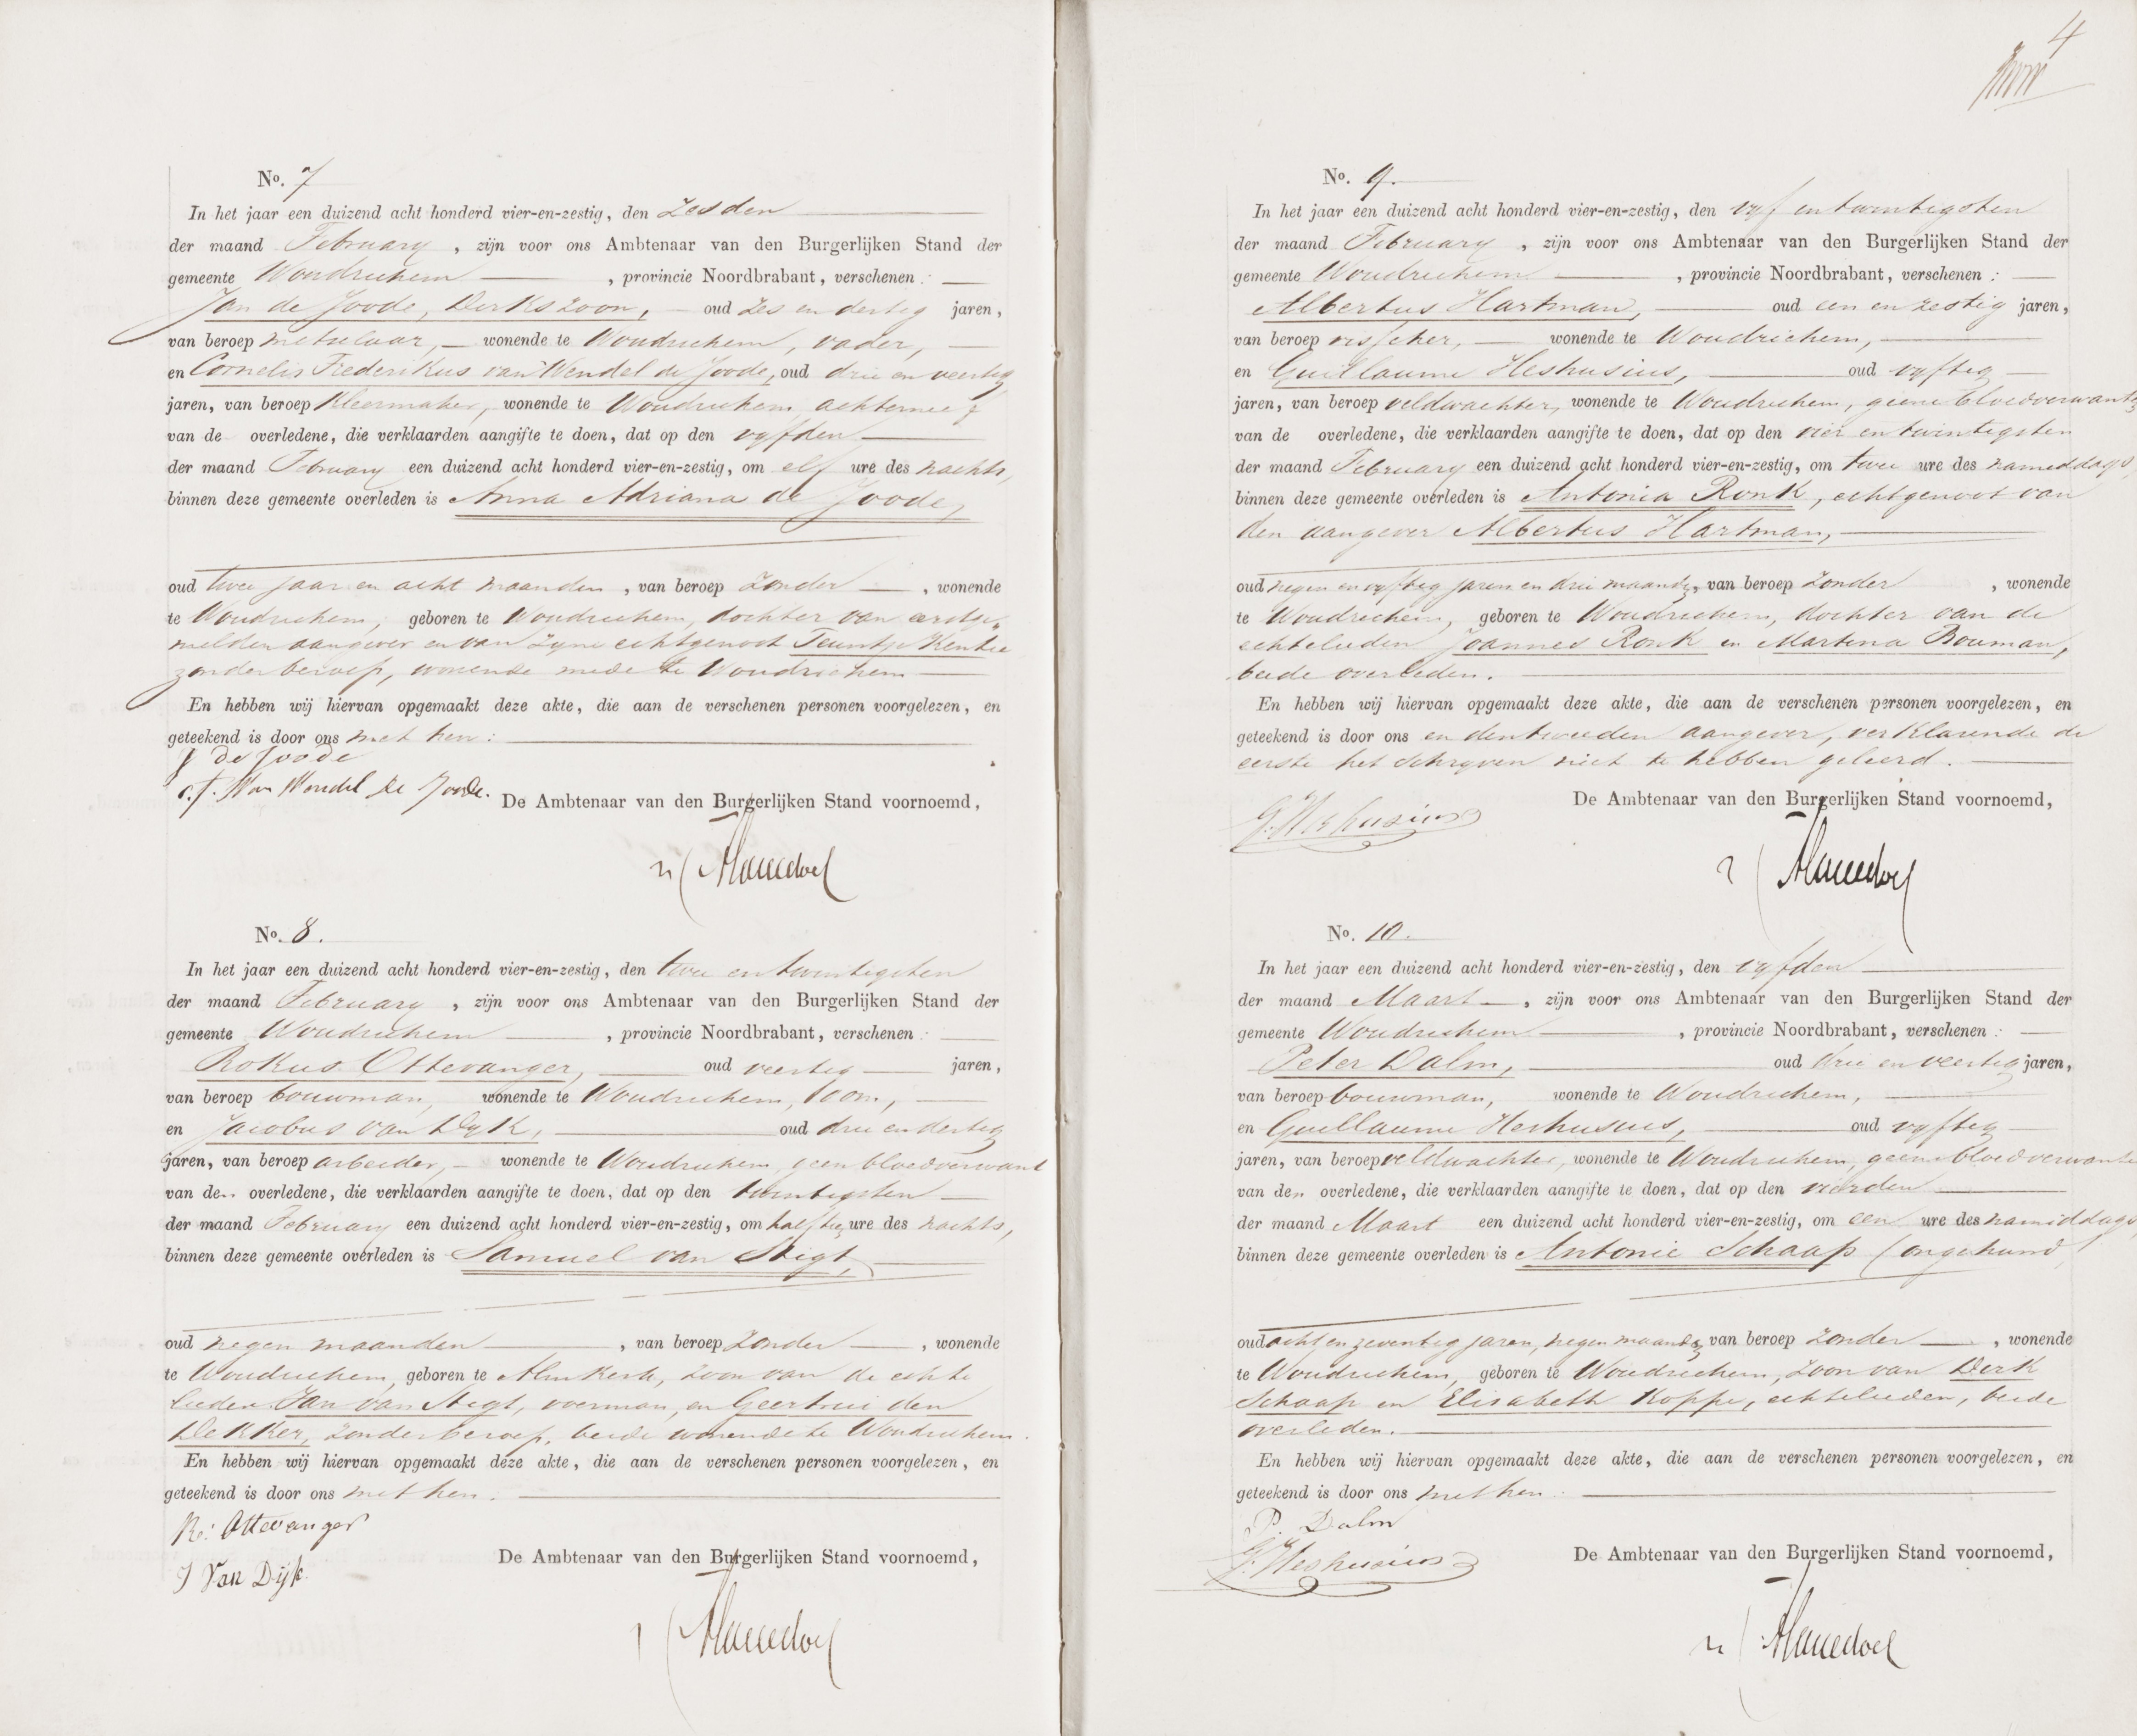 4
No. 7
In het jaar een duizend acht honderd vier-en-zestig, den Zesden
der maand February, zijn voor ons Ambtenaar van den Burgerlijken Stand der
gemeente Woudrichem, provincie Noordbrabant, verschenen:
Jan de Joode, Derkszoon, oud zes en dertig jaren,
van beroep metselaar, wonende te Woudrichem, vader,
en Cornelis Frederikus van Wendel de Joode, oud drie en veertig
jaren, van beroep kleermaker, wonende te Woudrichem, achterneef
van de overledene, die verklaarden aangifte te doen, dat op den vyfden
der maand February een duizend acht honderd vier-en-zestig, om elf ure des nachts,
binnen deze gemeente overleden is Anna Adriana de Joode,
oud twee jaar en acht maanden, van beroep Zonder, wonende
te Woudrichem, geboren te Woudrichem, dochter van eerstge-
melden aangever en van zyne echtgenoot Teuntje Kentie
zonder beroep, wonende mede te Woudrichem
En hebben wij hiervan opgemaakt deze akte, die aan de verschenen personen voorgelezen, en
geteekend is door ons met hen:
J de Joode
C.F. Van Wendel de Joode.
De Ambtenaar van den Burgerlijken Stand voornoemd,
No. 8.
In het jaar een duizend acht honderd vier-en-zestig, den twee en twintigsten
der maand February, zijn voor ons Ambtenaar van den Burgerlijken Stand der
gemeente Woudrichem, provincie Noordbrabant, verschenen:
Rokus Ottevanger, oud veertig jaren,
van beroep bouwman, wonende te Woudrichem, oom,
en Jacobus van Dyk, oud drie en dertig
jaren, van beroep arbeider, wonende te Woudrichem, geen bloedverwant
van den overledene, die verklaarden aangifte te doen, dat op den twintigsten
der maand February een duizend acht honderd vier-en-zestig, om half tien ure des nachts,
binnen deze gemeente overleden is Samuel van Stigt,
oud negen maanden, van beroep Zonder, wonende
te Woudrichem, geboren te Almkerk, zoon van de echte
lieden Jan van Stigt, voerman, en Geertrui den
Dekker, zonder beroep, beide wonende te Woudrichem.
En hebben wij hiervan opgemaakt deze akte, die aan de verschenen personen voorgelezen, en
geteekend is door ons met hen.
Rs: Ottevanger
J Van Dijk
De Ambtenaar van den Burgerlijken Stand voornoemd,
No. 9.
In het jaar een duizend acht honderd vier-en-zestig, den vyf en twintigsten
der maand February, zijn voor ons Ambtenaar van den Burgerlijken Stand der
gemeente Woudrichem, provincie Noordbrabant, verschenen:
Albertus Hartman, oud een en zestig jaren,
van beroep visscher, wonende te Woudrichem,
en Guillaume Heshusius, oud vyftig
jaren, van beroep veldwachter, wonende te Woudrichem, geene bloedverwanten
van de overledene, die verklaarden aangifte te doen, dat op den vier en twintigsten
der maand February een duizend acht honderd vier-en-zestig, om twee ure des nameddags,
binnen deze gemeente overleden is Antonia Ronk, echtgenoot van
den aangever Albertus Hartman,
oud negen en vyftig jaren en drie maanden, van beroep Zonder, wonende
te Woudrichem, geboren te Woudrichem, dochter van de
echtelieden Joannes Ronk en Martina Bouman,
beide overleden.
En hebben wij hiervan opgemaakt deze akte, die aan de verschenen personen voorgelezen, en
geteekend is door ons en den tweeden aangever, verklarende de
eerste het schryven niet te hebben geleerd.
G. Heshusius
De Ambtenaar van den Burgerlijken Stand voornoemd,
No. 10.
In het jaar een duizend acht honderd vier-en-zestig, den vyfden
der maand Maart, zijn voor ons Ambtenaar van den Burgerlijken Stand der
gemeente Woudrichem, provincie Noordbrabant, verschenen:
Peter Dalm, oud drie en veertig jaren,
van beroep bouwman, wonende te Woudrichem,
en Guillaume Heshusius, oud vyftig
jaren, van beroep veldwachter, wonende te Woudrichem, geene bloedverwanten
van den overledene, die verklaarden aangifte te doen, dat op den vierden
der maand Maart een duizend acht honderd vier-en-zestig, om een ure des namiddags,
binnen deze gemeente overleden is Antonie Schaap (ongehuwd)
oud acht en zeventig jaren, negen maanden, van beroep Zonder, wonende
te Woudrichem, geboren te Woudrichem, zoon van Derk
Schaap en Elisabeth Koppe, echtelieden, beide
overleden.
En hebben wij hiervan opgemaakt deze akte, die aan de verschenen personen voorgelezen, en
geteekend is door ons met hen.
P. Dalm
G. Heshusius
De Ambtenaar van den Burgerlijken Stand voornoemd,